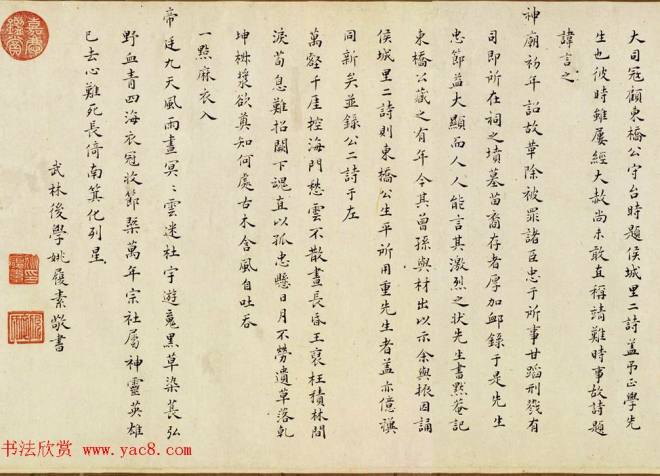 大司寇顧東橋公守台時題侯城里二詩蓋弔正學先
生也彼時雖屢經大赦尚未敢直稱靖難時事故詩題
諱言之
神廟初年詔故革除被罪諸臣忠于所事甘蹈刑戮有
司即所在祠之墳墓苗裔存者厚加卹錄于是先生
忠節益大顯而人人能言其激烈之狀先生書默菴記
東橋公藏之有年今其曾孫與材出以示余與振因誦
侯城里二詩則東橋公生平所用重先生者蓋亦億禩
同新矣並錄公二詩于左
萬壑千厓控海門愁雲不散晝長昏王裒枉積林間
淚荀息難招闕下魂直以孤忠懸日月不勞遺草落乾
坤椒漿欲奠知何處古木含風自吐吞
一點麻衣入
帝廷九天風雨晝冥冥雲迷杜宇遊魂黑草染萇弘
野血青四海衣冠收節槩萬年宗社屬神靈英雄
已去心難死長倚南箕化列星
武林後學姚履素敬書
嘉慶鑑賞
书法欣赏 www.yac8.com